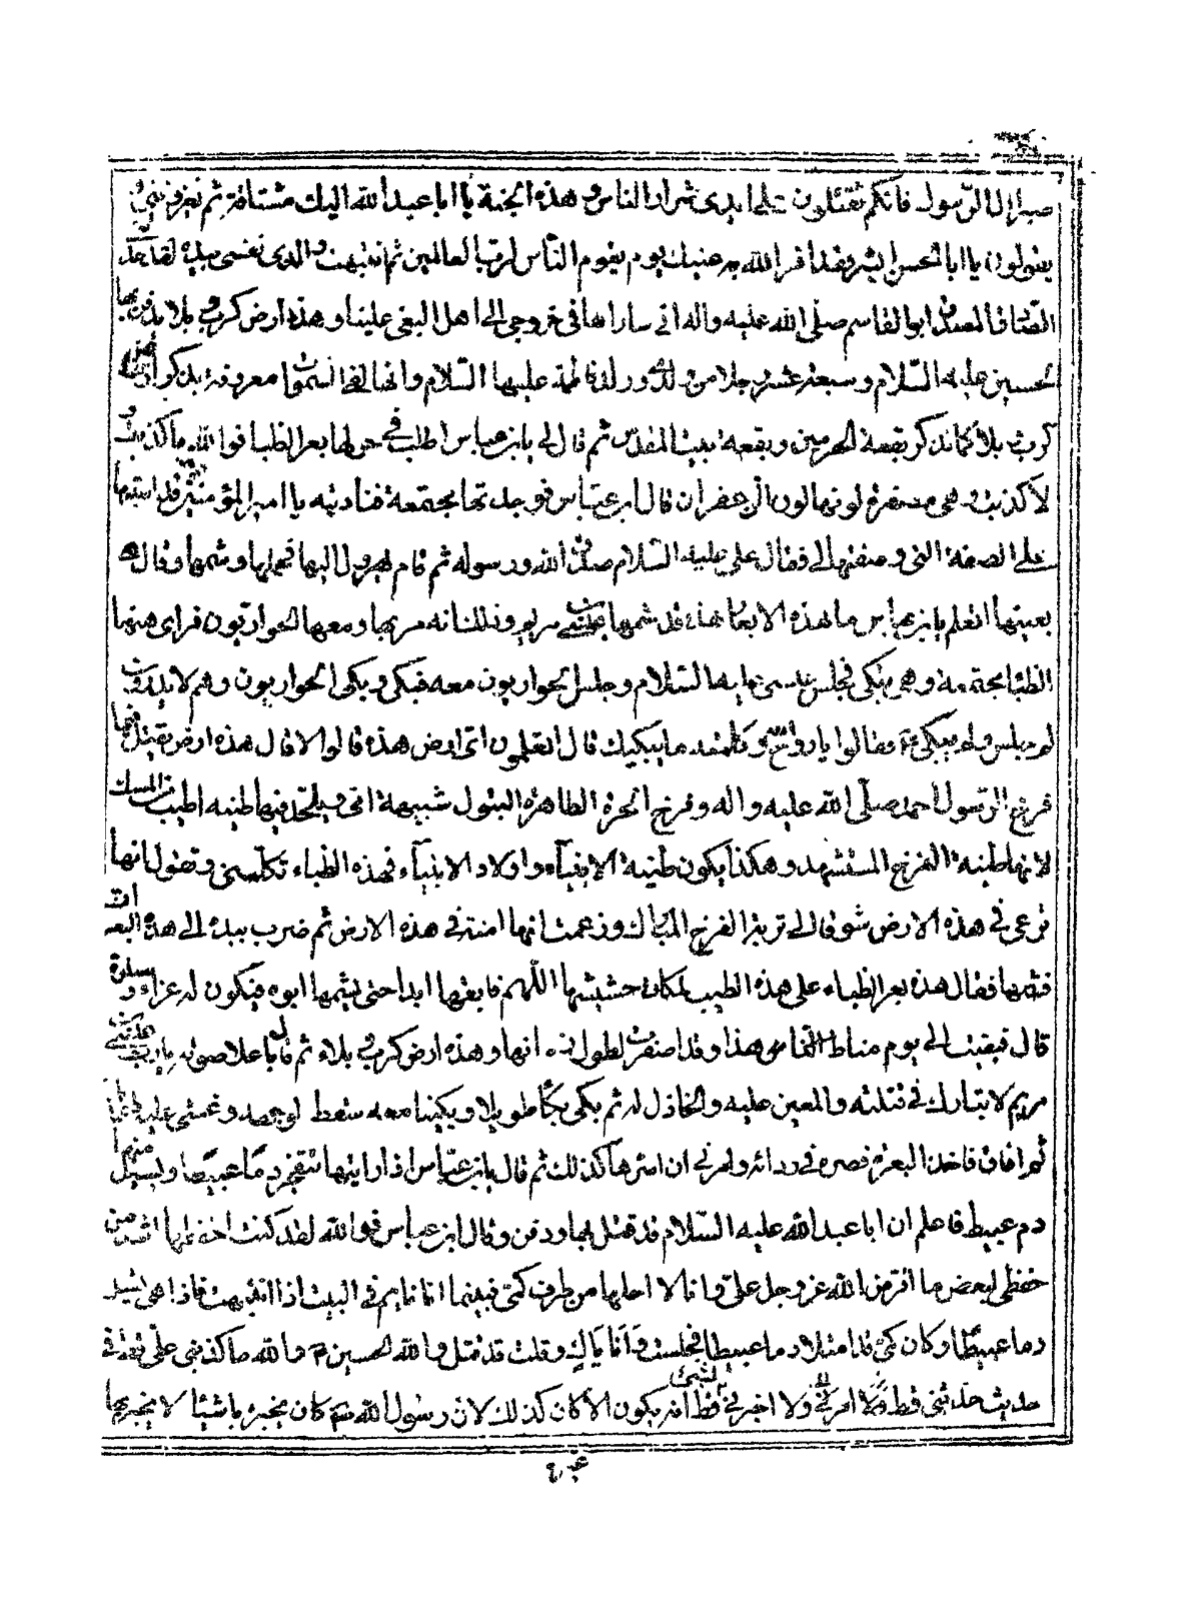 صبرا ال الرسول فانكم تقتلون على ايدى شرار الناس وهذه الجنة يا ابا عبد الله اليك مشتاقة ثم يعزوننى و
يقولون يا ابا الحسن ابشر فقد اقر الله به عينك يوم يقوم الناس لرب العالمين ثم انتبهت والذى نفسى بيده لقد حدثنى
الصادق المصدق ابو القاسم صلى الله عليه واله انى ساراها فى خروجى الى اهل البغى علينا وهذه ارض كرب وبلا يدفن فيها
الحسين عليه السلام وسبعة عشر رجلا من ولدى وولد فاطمة عليها السلام وانها لفى السموات معروفة يذكر ارض
كرب وبلا كما تذكر بقعة الحرمين وبقعة بيت المقدس ثم قال لى يا بن عباس اطلب فى حولها بعر الظبا فوالله ما كذبت و
لا كذبت وهى مصفرة لونها لون الزعفران قال ابن عباس فوجدتها مجتمعة فناديته يا امير المؤمنين قد اصبتها
على الصفة التى وصفتها لى فقال على عليه السلام صدق الله ورسوله ثم قام يهرول اليها فحملها وشمها وقال هى
بعينها اتعلم يا بن عباس ما هذه الابعار هذه قد شمها عيسى بن مريم وذلك انه مر بها ومعه الحواريون فراى هيهنا
الظبا مجتمعة وهى تبكى فجلس عيسى عليه السلام وجلس الحواريون معه فبكى وبكى الحواريون وهم لا يدرون
لم جلس ولم يبكى فقالوا يا روح الله وكلمته ما يبكيك قال اتعلمون اى ارض هذه قالوا لا قال هذه ارض يقتل فيها
فرخ الرسول احمد صلى الله عليه واله وفرخ الحرة الطاهرة البتول شبيهة امى ويلحد فيها طينه اطيب من المسك
لانها طينة الفرخ المستشهد وهكذا يكون طينة الانبياء واولاد الانبياء فهذه الظباء تكلمنى وتقول انها
ترعى فى هذه الارض شوقا الى تربة الفرخ المبارك وزعمت انها امنة فى هذه الارض ثم ضرب بيده الى هذه البعرات
فشمها فقال هذه بعر الظباء على هذه الطيب لمكان حشيشها اللهم فابقها ابدا حتى يشمها ابوه فيكون له عزاء وسلوة
قال فبقيت الى يوم مناط الناس هذا وقد اصفرت لطول زمانها وهذه ارض كرب وبلاء ثم قال باعلا صوته يا رب عيسى بن
مريم لا تبارك فى قتلته والمعين عليه والخاذل له ثم بكى بكاء طويلا وبكينا معه حتى سقط لوجهه وغشى عليه طويلا
ثم افاق فاخذ البعر فصره فى ردائه وامرنى ان اصرها كذلك ثم قال يا بن عباس اذا رايتها تنفجر دما عبيطا ويسيل منها
دم عبيط فاعلم ان ابا عبد الله عليه السلام قد قتل بها ودفن وقال ابن عباس فوالله لقد كنت احفظها اشد من
حفظى لبعض ما افترض الله عز وجل على وانا لا احلها من طرف كمى فبينما انا نايم فى البيت اذا انتبهت فاذا هى تسيل
دما عبيطا وكان كمى قد امتلا دما عبيطا فجلست وانا باك وقلت قد قتل والله الحسين والله ما كذبنى على قط فى
حديث حدثنى قط ولا اخبرنى بشئ قط انه يكون الا كان كذلك لان رسول الله ص كان يخبره باشيئا لا يخبر بها